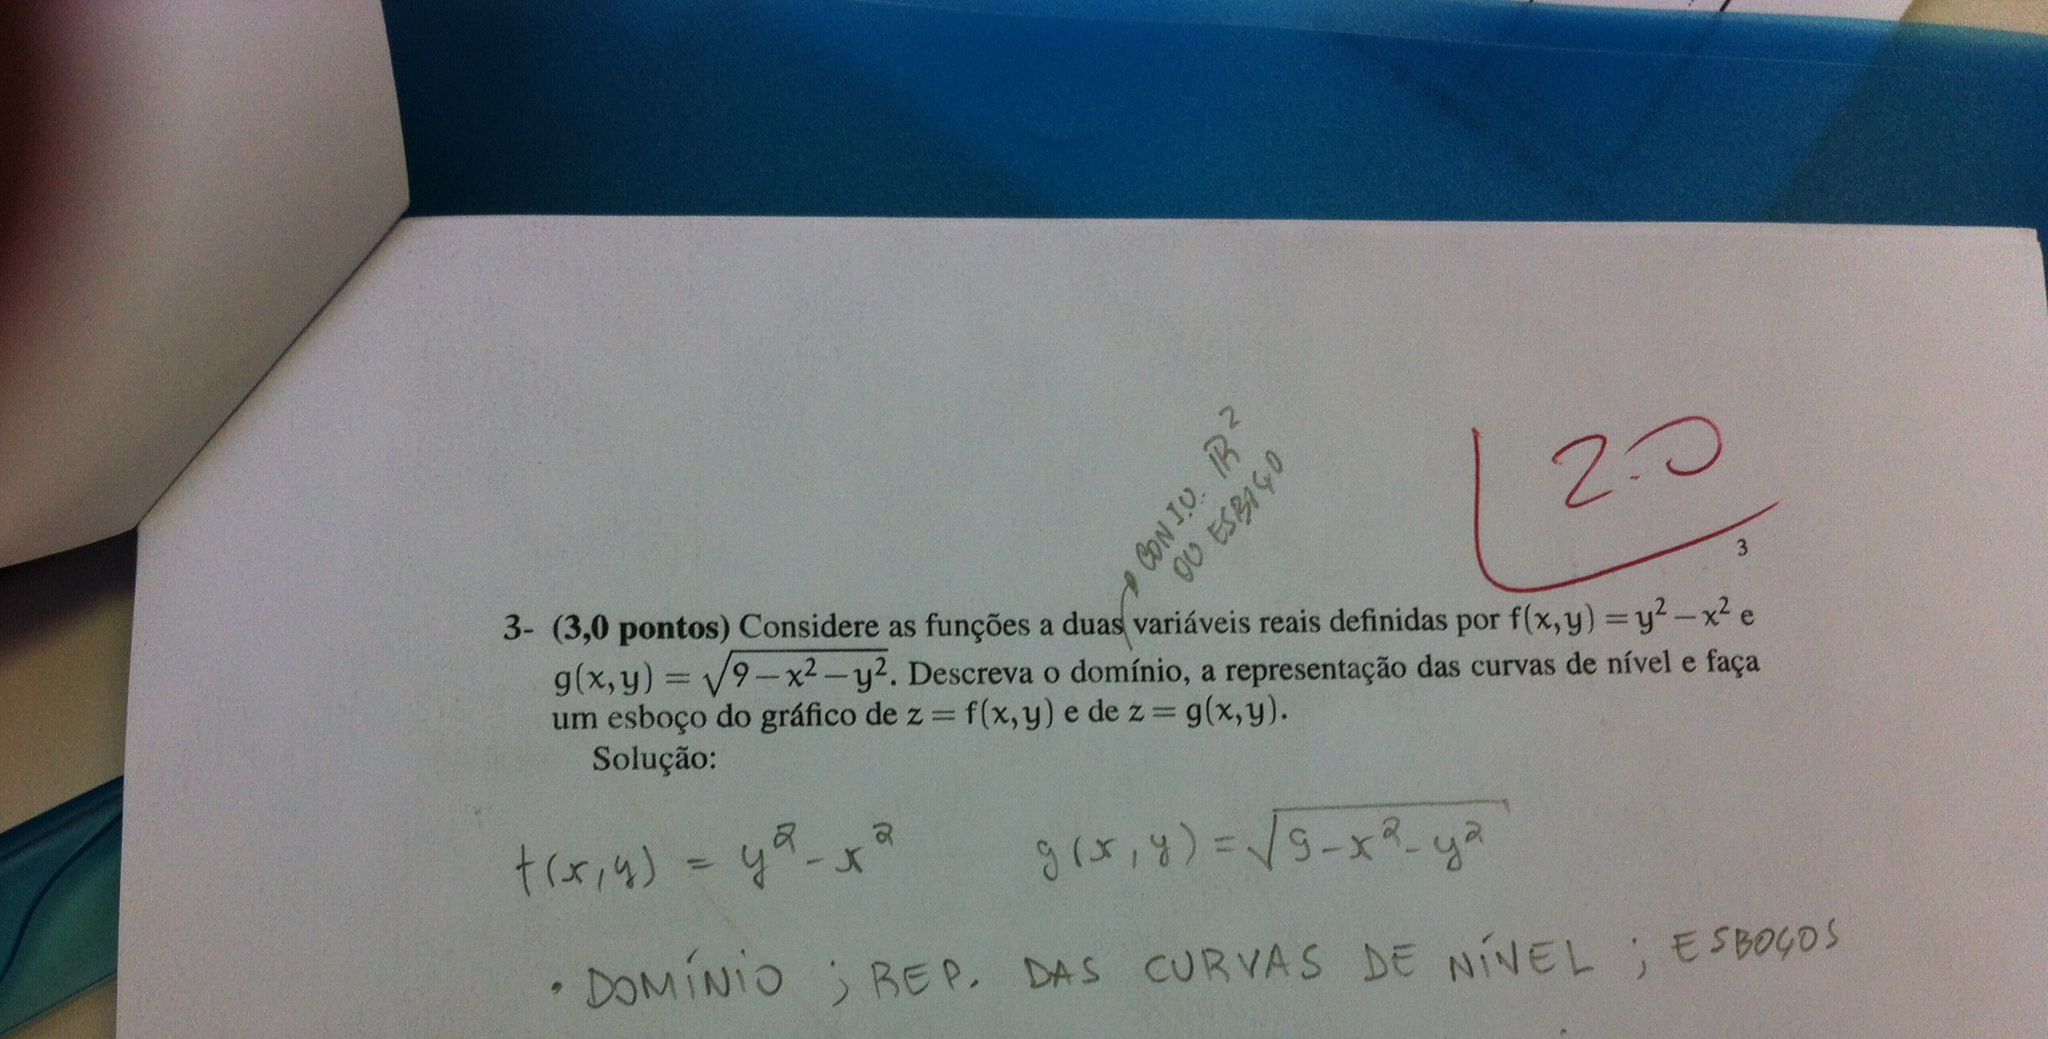 CONJ.U. IR²
OU ESBAÇO
2.0
3
3- (3,0 pontos) Considere as funções a duas variáveis reais definidas por f(x,y) = y² − x² e
g(x,y) = √9−x²−y². Descreva o domínio, a representação das curvas de nível e faça
um esboço do gráfico de z = f(x,y) e de z = g(x,y).
Solução:
f(x,y) = y² - x² g(x,y) = √9-x²-y²
• DOMÍNIO ; REP. DAS CURVAS DE NÍVEL ; ESBOÇOS